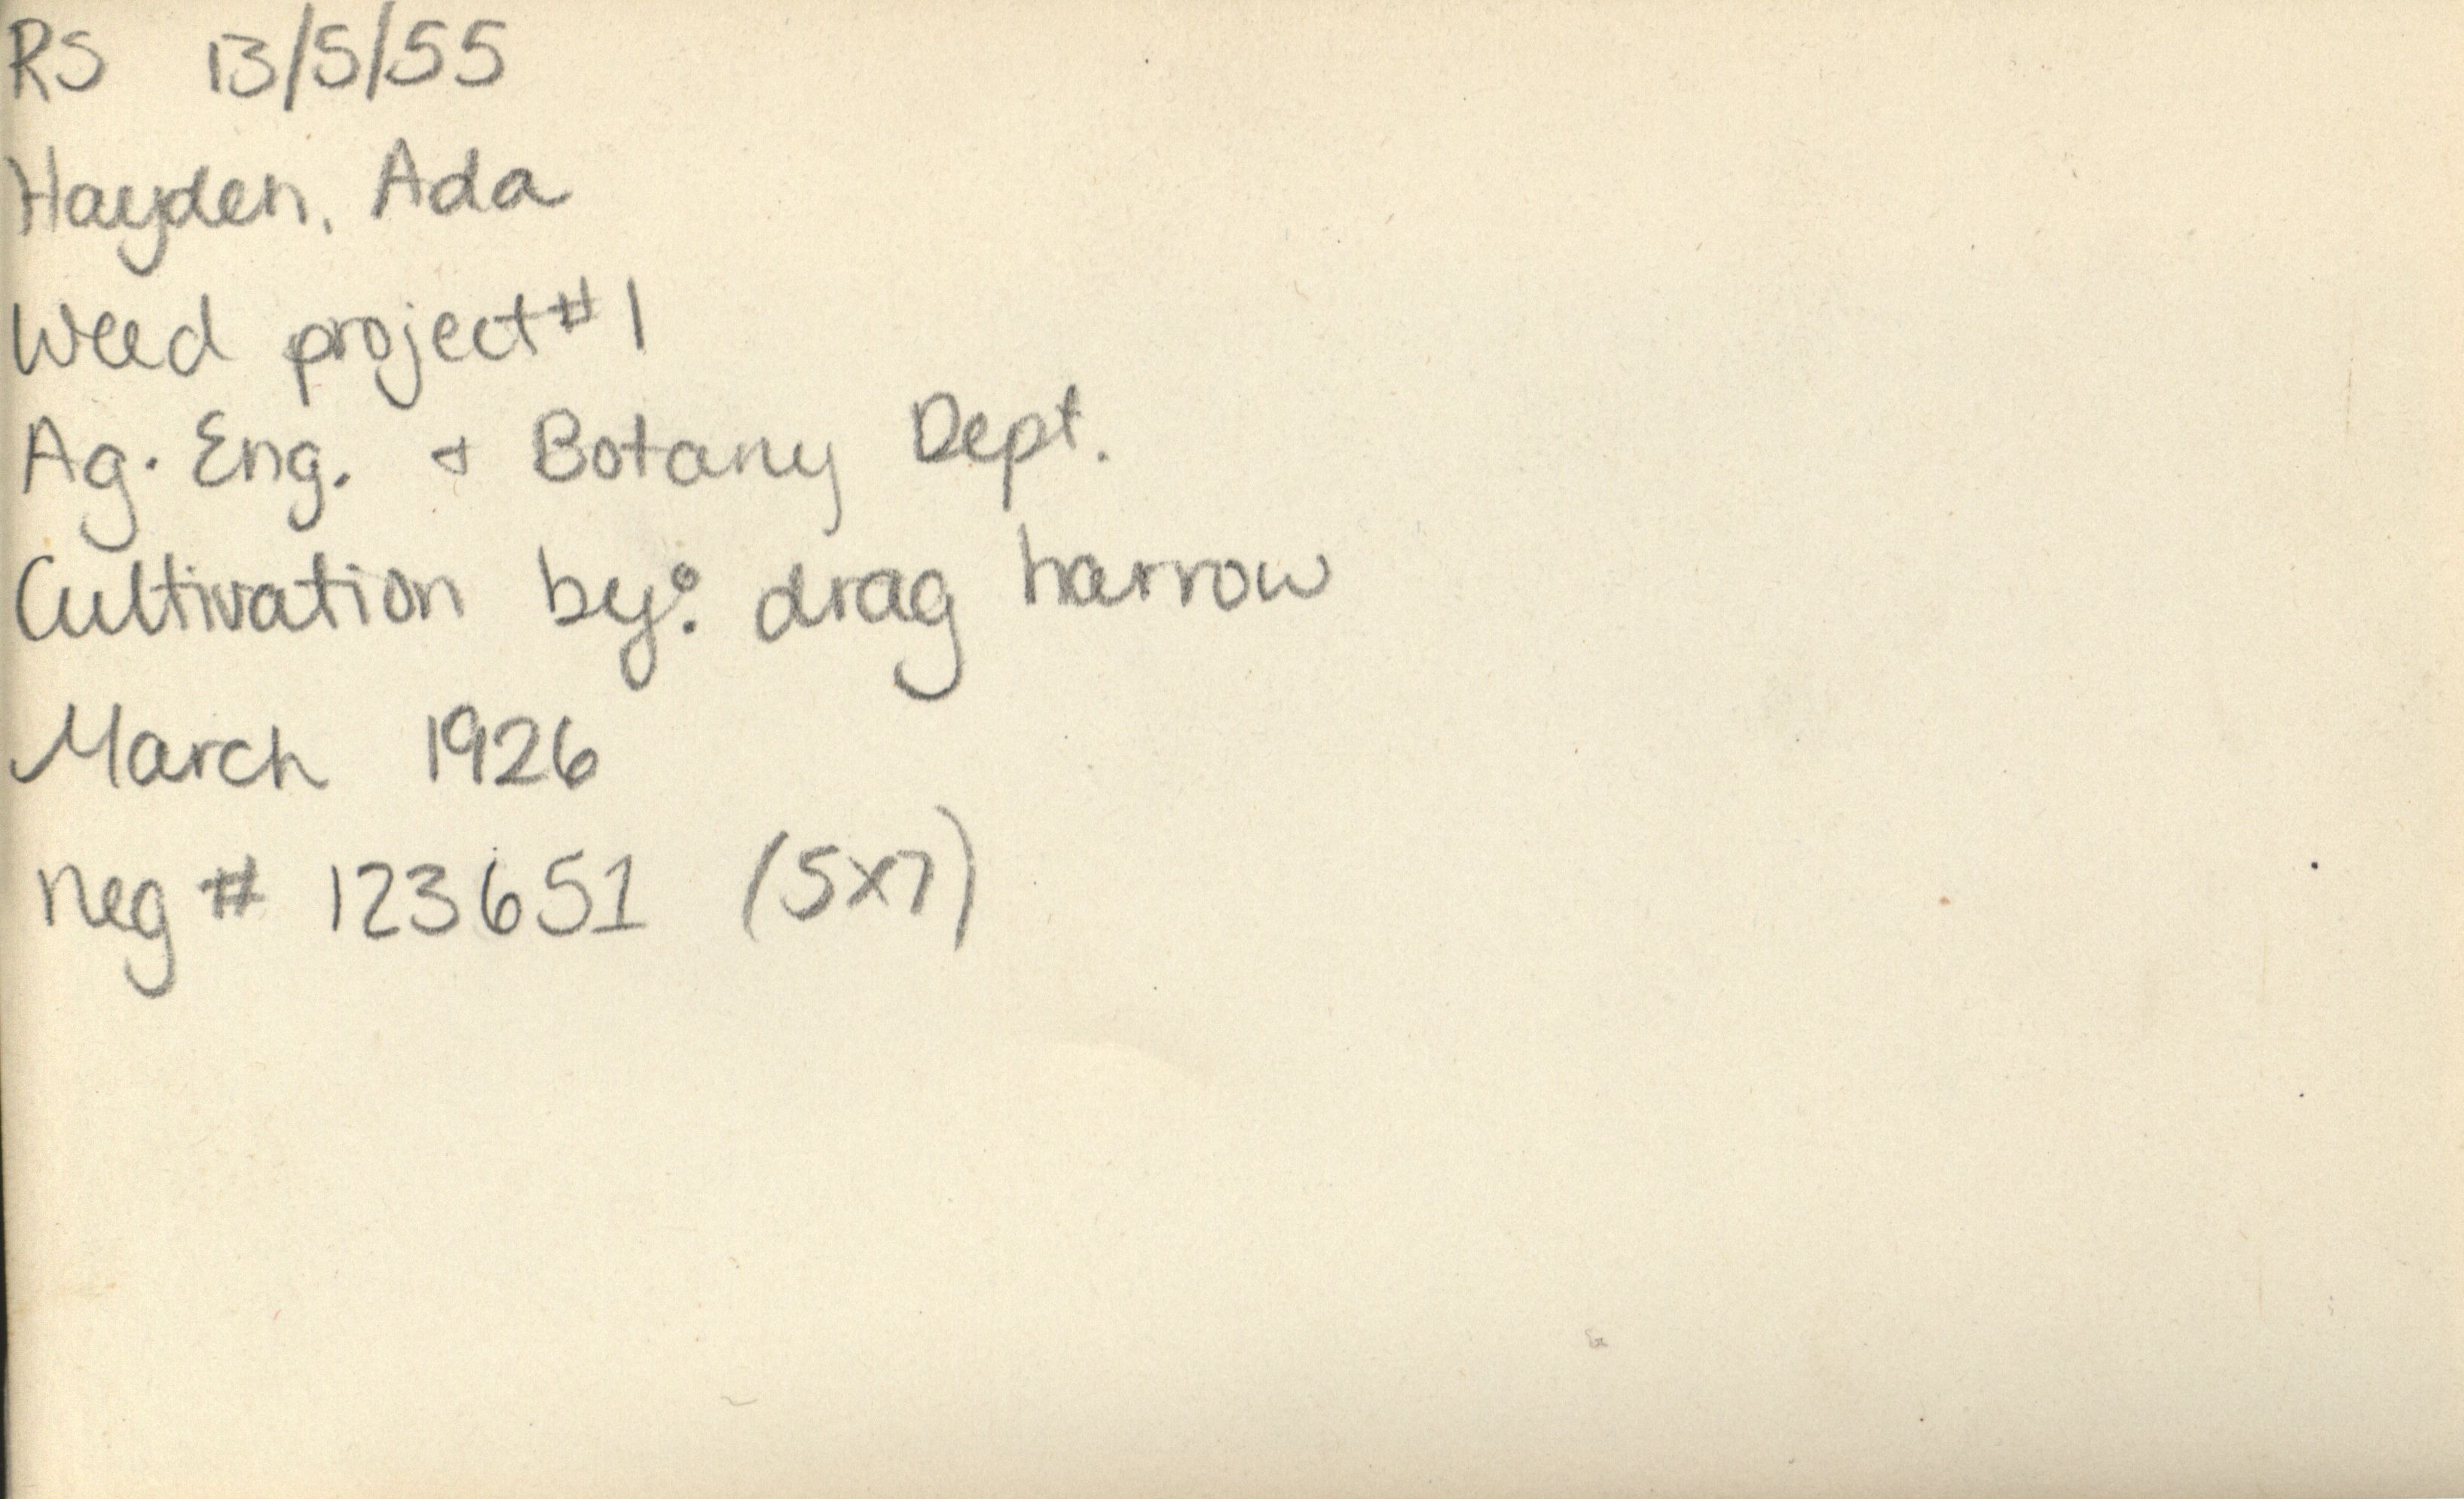 RS 13/5/55
Hayden, Ada
Weed project #1
Ag. Eng. & Botany Dept.
Cultivation by: drag harrow
March 1926
neg # 123651 (5x7)